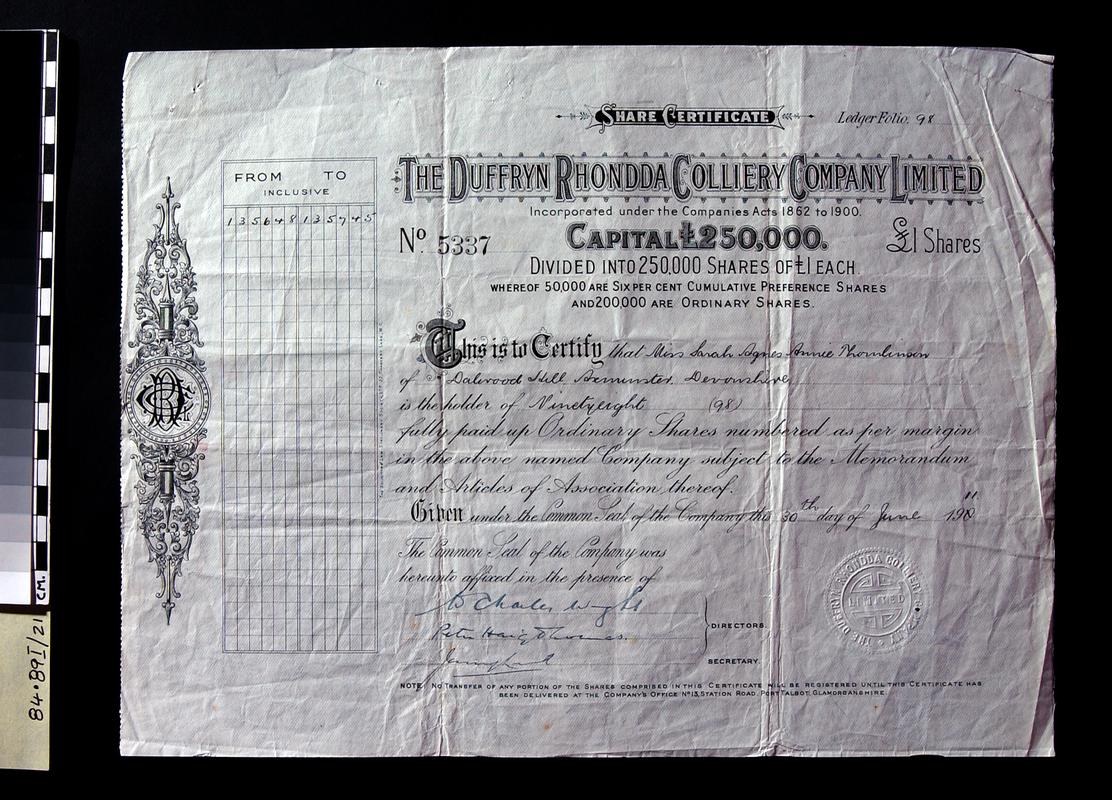 SHARE CERTIFICATE
Ledger Folio. 98
THE DUFFRYN RHONDDA COLLIERY COMPANY LIMITED
Incorporated under the Companies Acts 1862 to 1900.
No 5337
CAPITAL £250,000.
£1 Shares
DIVIDED INTO 250,000 SHARES OF £1 EACH.
WHEREOF 50,000 ARE SIX PER CENT CUMULATIVE PREFERENCE SHARES
AND 200,000 ARE ORDINARY SHARES.
FROM TO
INCLUSIVE
135648 135745
This is to Certify that Miss Sarah Agnes Annie Thomlinson
of Dalwood Hill Axminster, Devonshire
is the holder of Ninetyeight (98)
fully paid up Ordinary Shares numbered as per margin
in the above named Company subject to the Memorandum
and Articles of Association thereof.
Given under the Common Seal of the Company this 30th day of June 1911
The Common Seal of the Company was
hereunto affixed in the presence of
Charles Wright
Peter Haig Thomas.
DIRECTORS.
SECRETARY.
THE DUFFRYN RHONDDA COLLIERY COMPANY
LIMITED
NOTE. NO TRANSFER OF ANY PORTION OF THE SHARES COMPRISED IN THIS CERTIFICATE WILL BE REGISTERED UNTIL THIS CERTIFICATE HAS
BEEN DELIVERED AT THE COMPANY'S OFFICE No 13, STATION ROAD, PORT TALBOT, GLAMORGANSHIRE.
CM.
84.89I/21